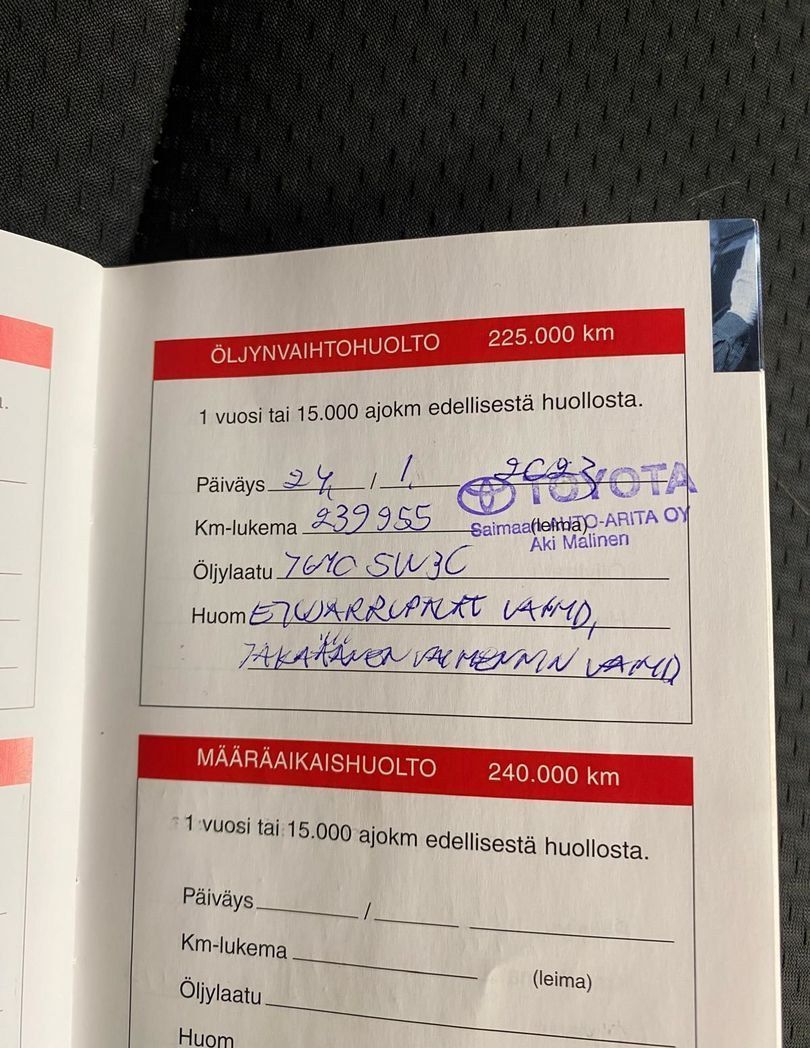 ÖLJYNVAIHTOHUOLTO 225.000 km
1 vuosi tai 15.000 ajokm edellisestä huollosta.
Päiväys 24 / 1. 2023
TOYOTA
Km-lukema 239955 (leima)
Saimaan AUTO-ARITA OY
Aki Malinen
Öljylaatu
Huom
TAKAÄÄNENVAIMENNIN
MÄÄRÄAIKAISHUOLTO 240.000 km
1 vuosi tai 15.000 ajokm edellisestä huollosta.
Päiväys /
Km-lukema (leima)
Öljylaatu
Huom